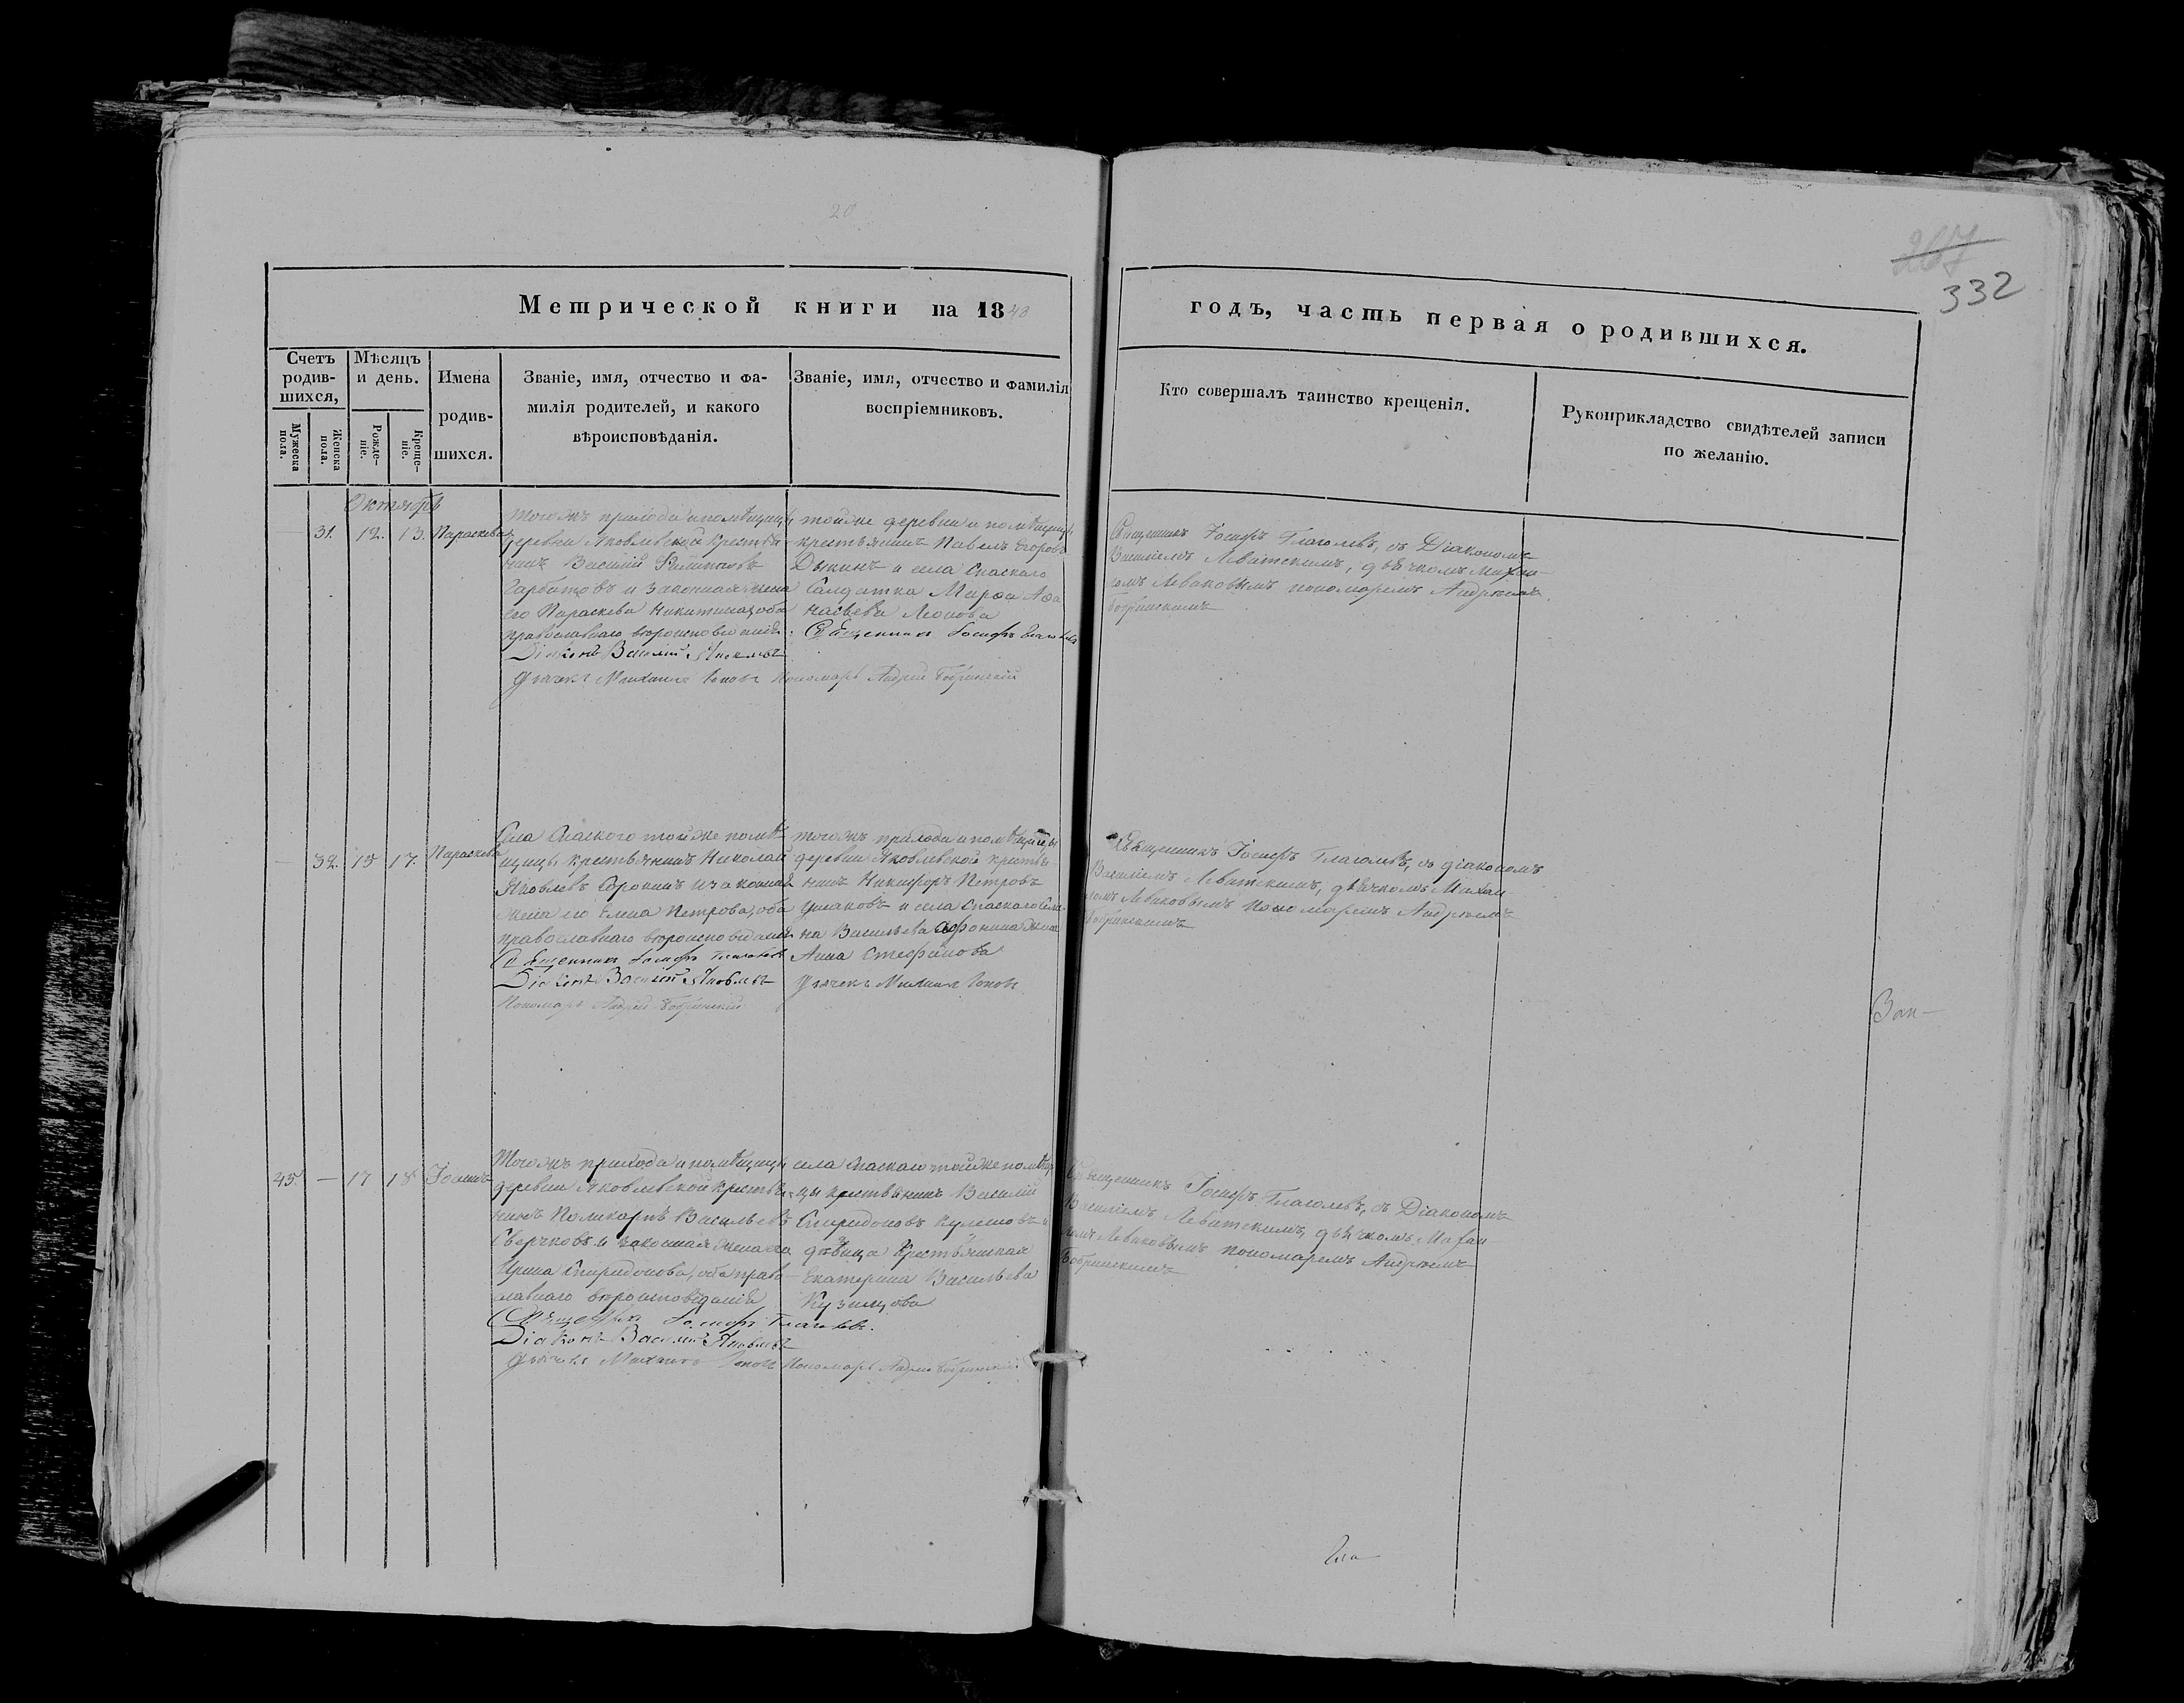 20
267
332
Метрической книги на 1843
годъ, часть первая о родившихся.
Счетъ родив-шихся,
Мужеска пола.
Женска пола.
Мѣсяцъ и день.
Рожде-ніе.
Креще-ніе.
Имена родив-шихся.
Званіе, имя, отчество и фа-
милія родителей, и какого
вѣроисповѣданія.
Званіе, имя, отчество и фамилія
воспріемниковъ.
Кто совершалъ таинство крещенія.
Рукоприкладство свидѣтелей записи
по желанію.
Октябрь
31. 12. 13. Параскева
Тогожъ прихода и помѣщицы
деревни Яковлевской крестья-
нинъ Василій Филиповъ
Гарбатовъ и законная жена
его Параскева Никитина, оба
православнаго вѣроисповѣданія
Діаконъ Василій Яковлевъ
Дьячекъ Михаилъ Поповъ Пономарь Андрей Бобринскій
тойже деревни и помѣщицы
крестьянинъ Павелъ Егоровъ
Дыкинъ и села Спаскаго
Салдатка Марѳа Аѳа
насьева Леонова
Священникъ Іосифъ Глаголевъ
Священникъ Іосифъ Глаголевъ, съ Діакономъ
Василіемъ Левитскимъ, дьячкомъ Михаи-
ломъ Леваковымъ пономаремъ Андреемъ
Бобринскимъ
32. 15 17. Параскева
Села Спаского тойже помѣ-
щицы крестьянинъ Николай
Яковлевъ Сорокинъ и законная
жена его Елена Петрова, оба
православнаго вѣроисповѣданія
Священникъ Іосифъ Глаголевъ
Діаконъ Василій Яковлевъ
Пономарь Андрей Бобринскій
тогожъ прихода и помѣщицы
деревни Яковлевской крестья-
нинъ Никифоръ Петровъ
Ушаковъ и села Спаскаго
на Васильева Афонина жена
Анна Стефанова
Дьячекъ Михаилъ Поповъ
Священникъ Іосифъ Глаголевъ, съ діакономъ
Василіемъ Левитскимъ, дьячкомъ Михаи-
ломъ Леваковымъ пономаремъ Андреемъ
Бобринскимъ
45. — 17 18 Іоаннъ
Тогожъ прихода и помѣщицы
деревни Яковлевской крестья-
нинъ Поликарпъ Васильевъ
Сверчковъ и законная жена его
Ирина Спиридонова, оба право-
славнаго вѣроисповѣданія
Священникъ Іосифъ Глаголевъ.
Діаконъ Василій Яковлевъ
Дьячекъ Михаилъ Поповъ Пономарь Андрей Бобринскій
села Спаскаго тойже помѣщи-
цы крестьянинъ Василій
Спиридоновъ Кулешовъ и
дѣвица Крестьянская
Екатерина Васильева
Кузнецова
Священникъ Іосифъ Глаголевъ, съ Діакономъ
Василіемъ Левитскимъ, дьячкомъ Михаи-
ломъ Леваковымъ пономаремъ Андреемъ
Бобринскимъ